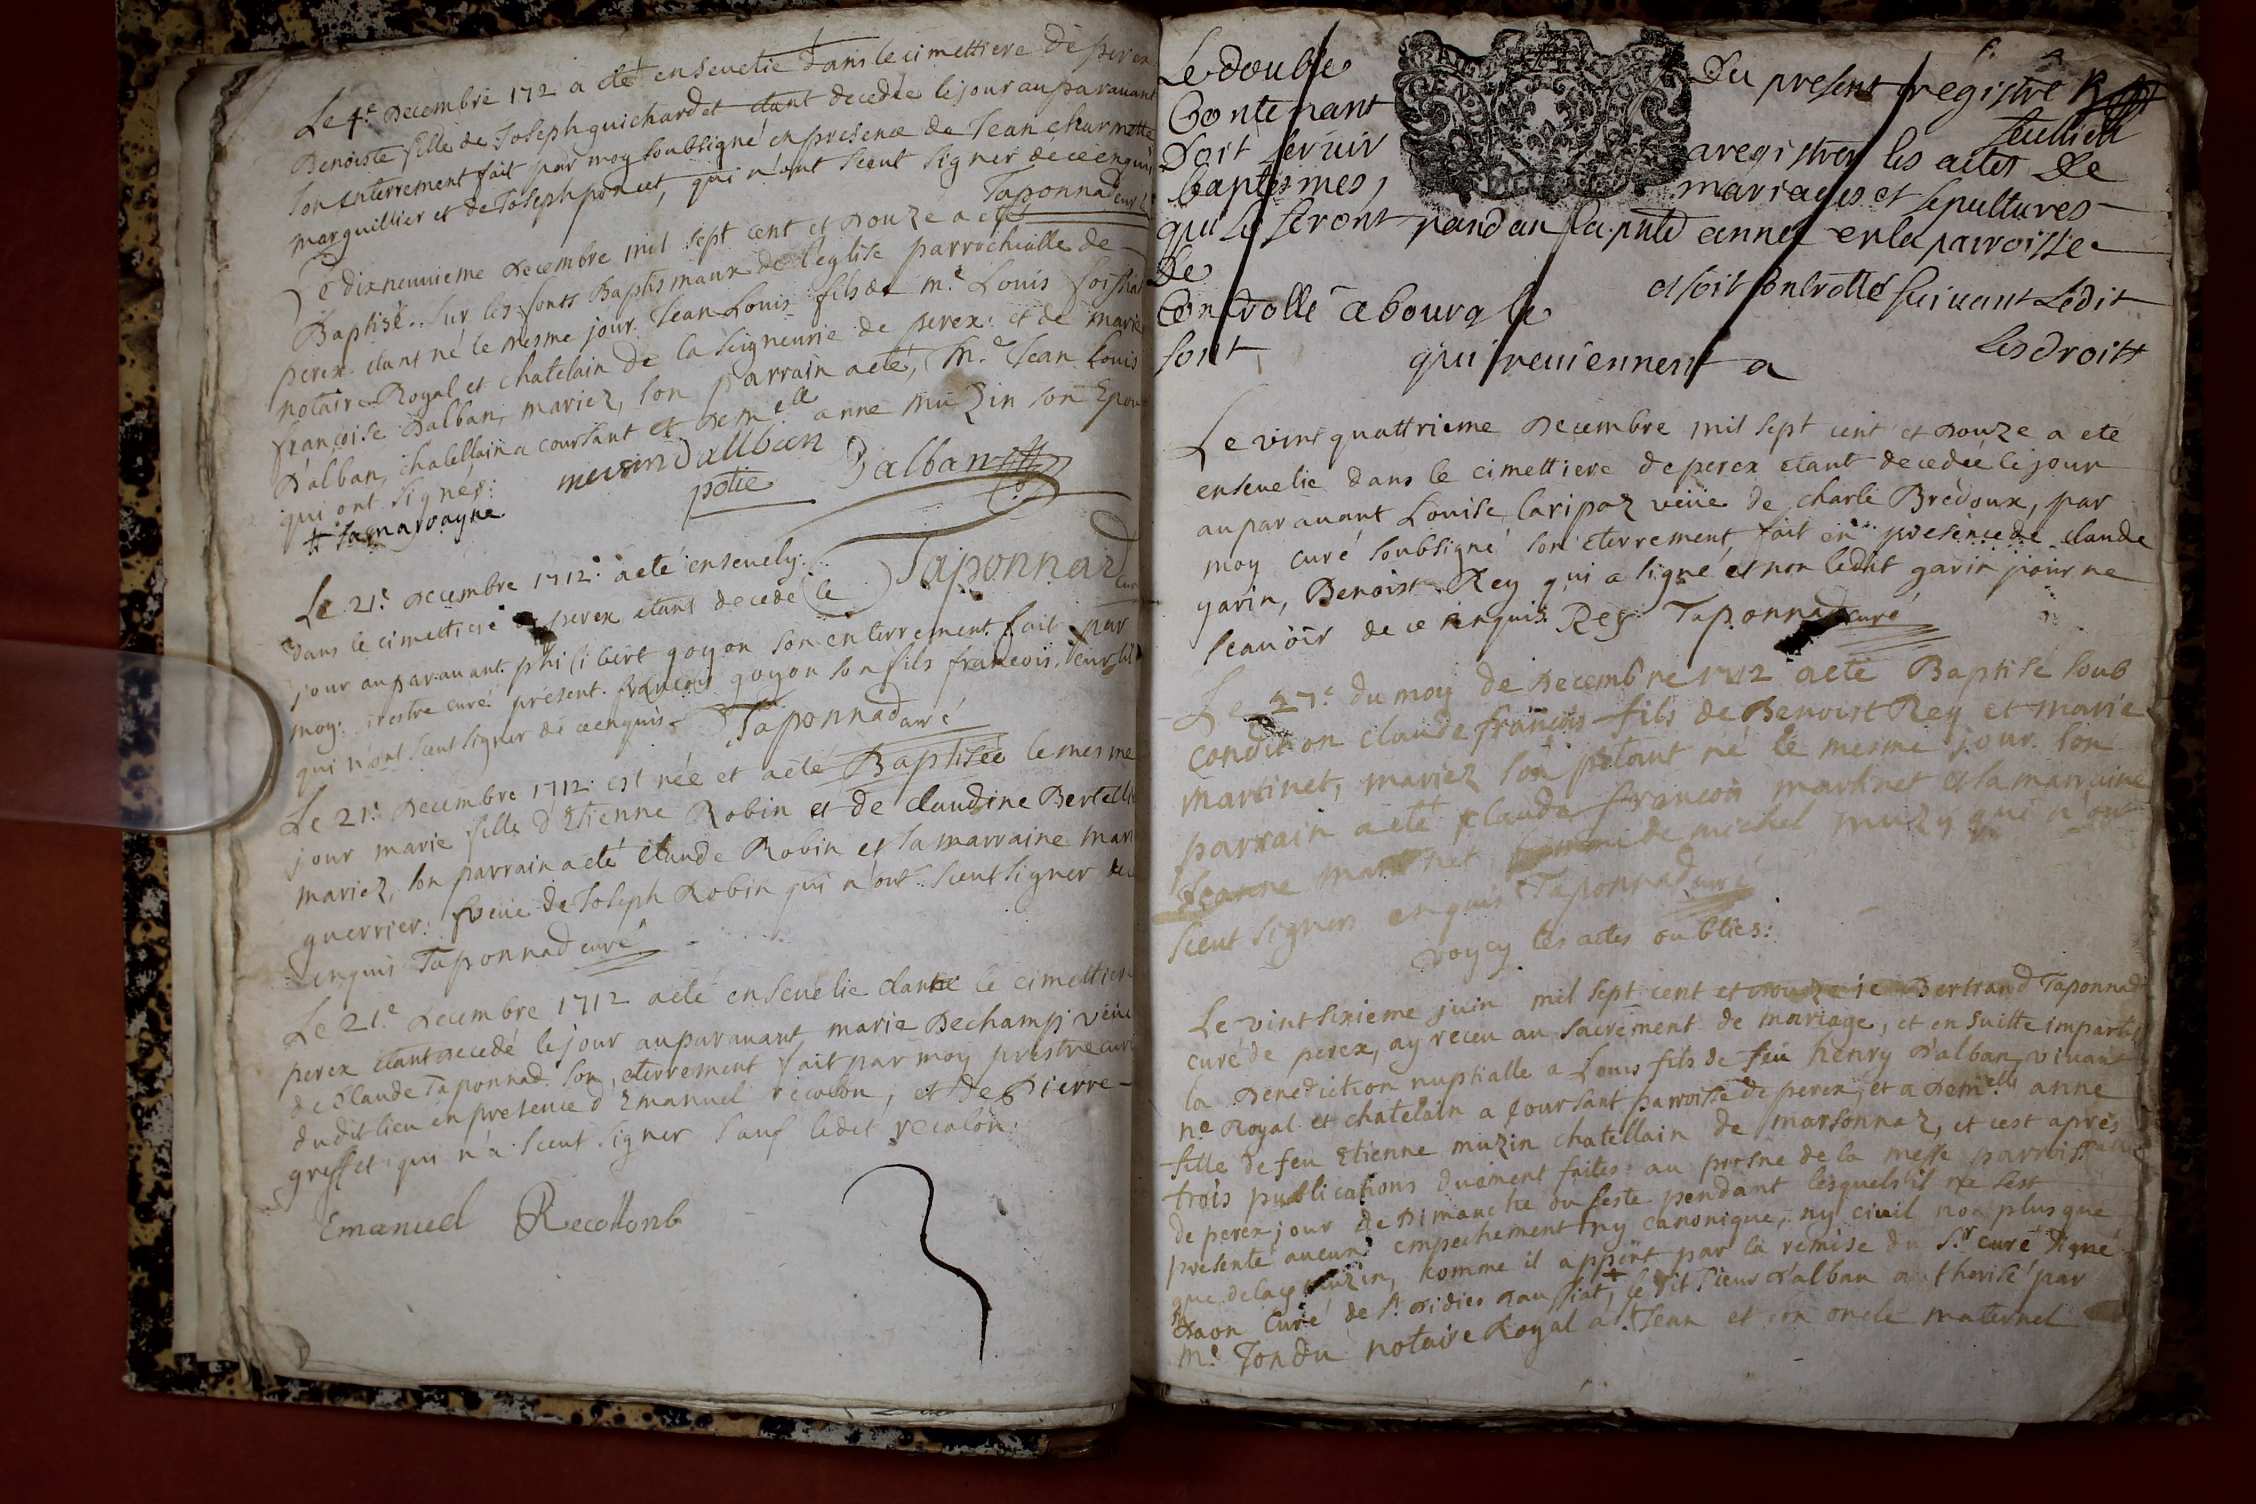 Le 4e Decembre 1712 a eté ensevelie dans le cimettiere de perex
Benoiste fille de Joseph guichardet etant decedée le jour auparavant
son enterrement fait par moy soubsigné en presence de Jean charmette
marguillier et de Joseph poncet, qui n'ont sceut signer de ce enquis
Taponnad curé
Le dixneuvieme Decembre mil sept cent et douze a eté
Baptisé sur les fonts Baptismaux de l'eglise parrochialle de
perex etant né le mesme jour Jean Louis fils de me Louis
notaire Royal et chatelain de la seigneurie de perex et de marie
françoise Dalban, mariez, son parrain a eté, me Jean Louis
D'alban, chatellain a coursant et demelle anne muzin son Epouse
qui ont signez:
+ sa marrayne
muzin dallban
Dalban
Taponnad curé
Le 21e Decembre 1712 a eté ensevely
dans le cimettiere de perex etant decedé le
jour auparavant philibert goyon son enterrement fait par
moy prestre curé present françois goyon son fils francois
qui n'ont sceut signer de ce enquis Taponnad curé
Le 21e Decembre 1712 est née et a eté Baptisée le mesme
jour marie fille d'Etienne Robin et de claudine
mariez, son parrain a eté claude Robin et la marraine marie
guerrier veuve de Joseph Robin qui n'ont sceut signer de ce
enquis Taponnad curé
Le 21e Decembre 1712 a eté ensevélie dans le cimettiere
perex etant decedé le jour auparavant marie Dechamp veuve
de Claude Taponnad son eterrement fait par moy prestre curé
dudit lieu en presence d'Emanuel recolon, et de Pierre
greffet qui n'a sceut signer sauf ledit recolon:
Emanuel Recollonb
Le double du present régistre
Contenant
Doit servir a registrer les actes de
baptesmes, mariages et sepultures
qui se feront pandan la pnte année en la parroisse
de et soit controllé suivant Ledit
Controllé a bourg le
sont qui reviennent a Les droits
Le vint quattrieme Decembre mil sept cent et douze a eté
ensevelie dans le cimettiere de perex etant decedée le jour
auparavant Louise laripaz veuve de charle Bredoux, par
moy curé soubsigné son eterrement fait en presence de claude
garin, Benoist Rey qui a signé et non ledit garin pour ne
scavoir de ce enquis Rey Taponnad curé
Le 27e du moy de Decembre 1712 a eté Baptisé soub
condition claude françois fils de Benoist Rey et marie
martinet, mariez etant né le mesme jour son
parrain a eté claude françois martinet et la marraine
Jeanne martinet femme de michel muzy qui n'ont
sceut signer enquis Taponnad curé
voycy les actes oubliés:
Le vint sixieme juin mil sept cent et douze je Bertrand Taponnad
curé de perex, ay receu au sacrement de mariage, et en suitte imparti
la Benediction nuptialle a Louis fils de feu henry D'alban vivant
ne Royal et chatelain a coursant parroisse de perex, et a Demelle anne
fille de feu Etienne muzin chatellain de marsonnaz, et cest après
trois publications duement faites au prosne de la messe parroissialle
de perex jour de Dimanche ou feste pendant lesquels il ne sest
presenté aucun empechement ny canonique, ny civil non plus que
que delad muzin, comme il appert par la remise du Sr curé signé
curé de St Didier Daussiat, le dit sieur d'alban authorisé par
me Tondu notaire Royal a St Jean et son oncle maternel